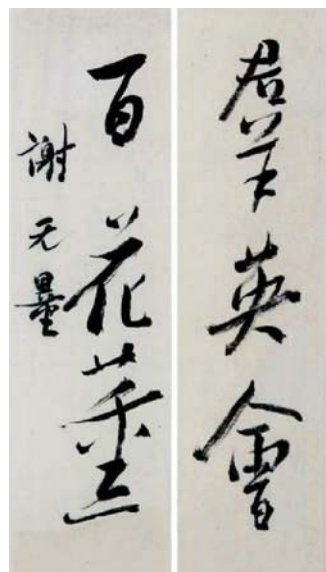 羣英會
百花
謝无量